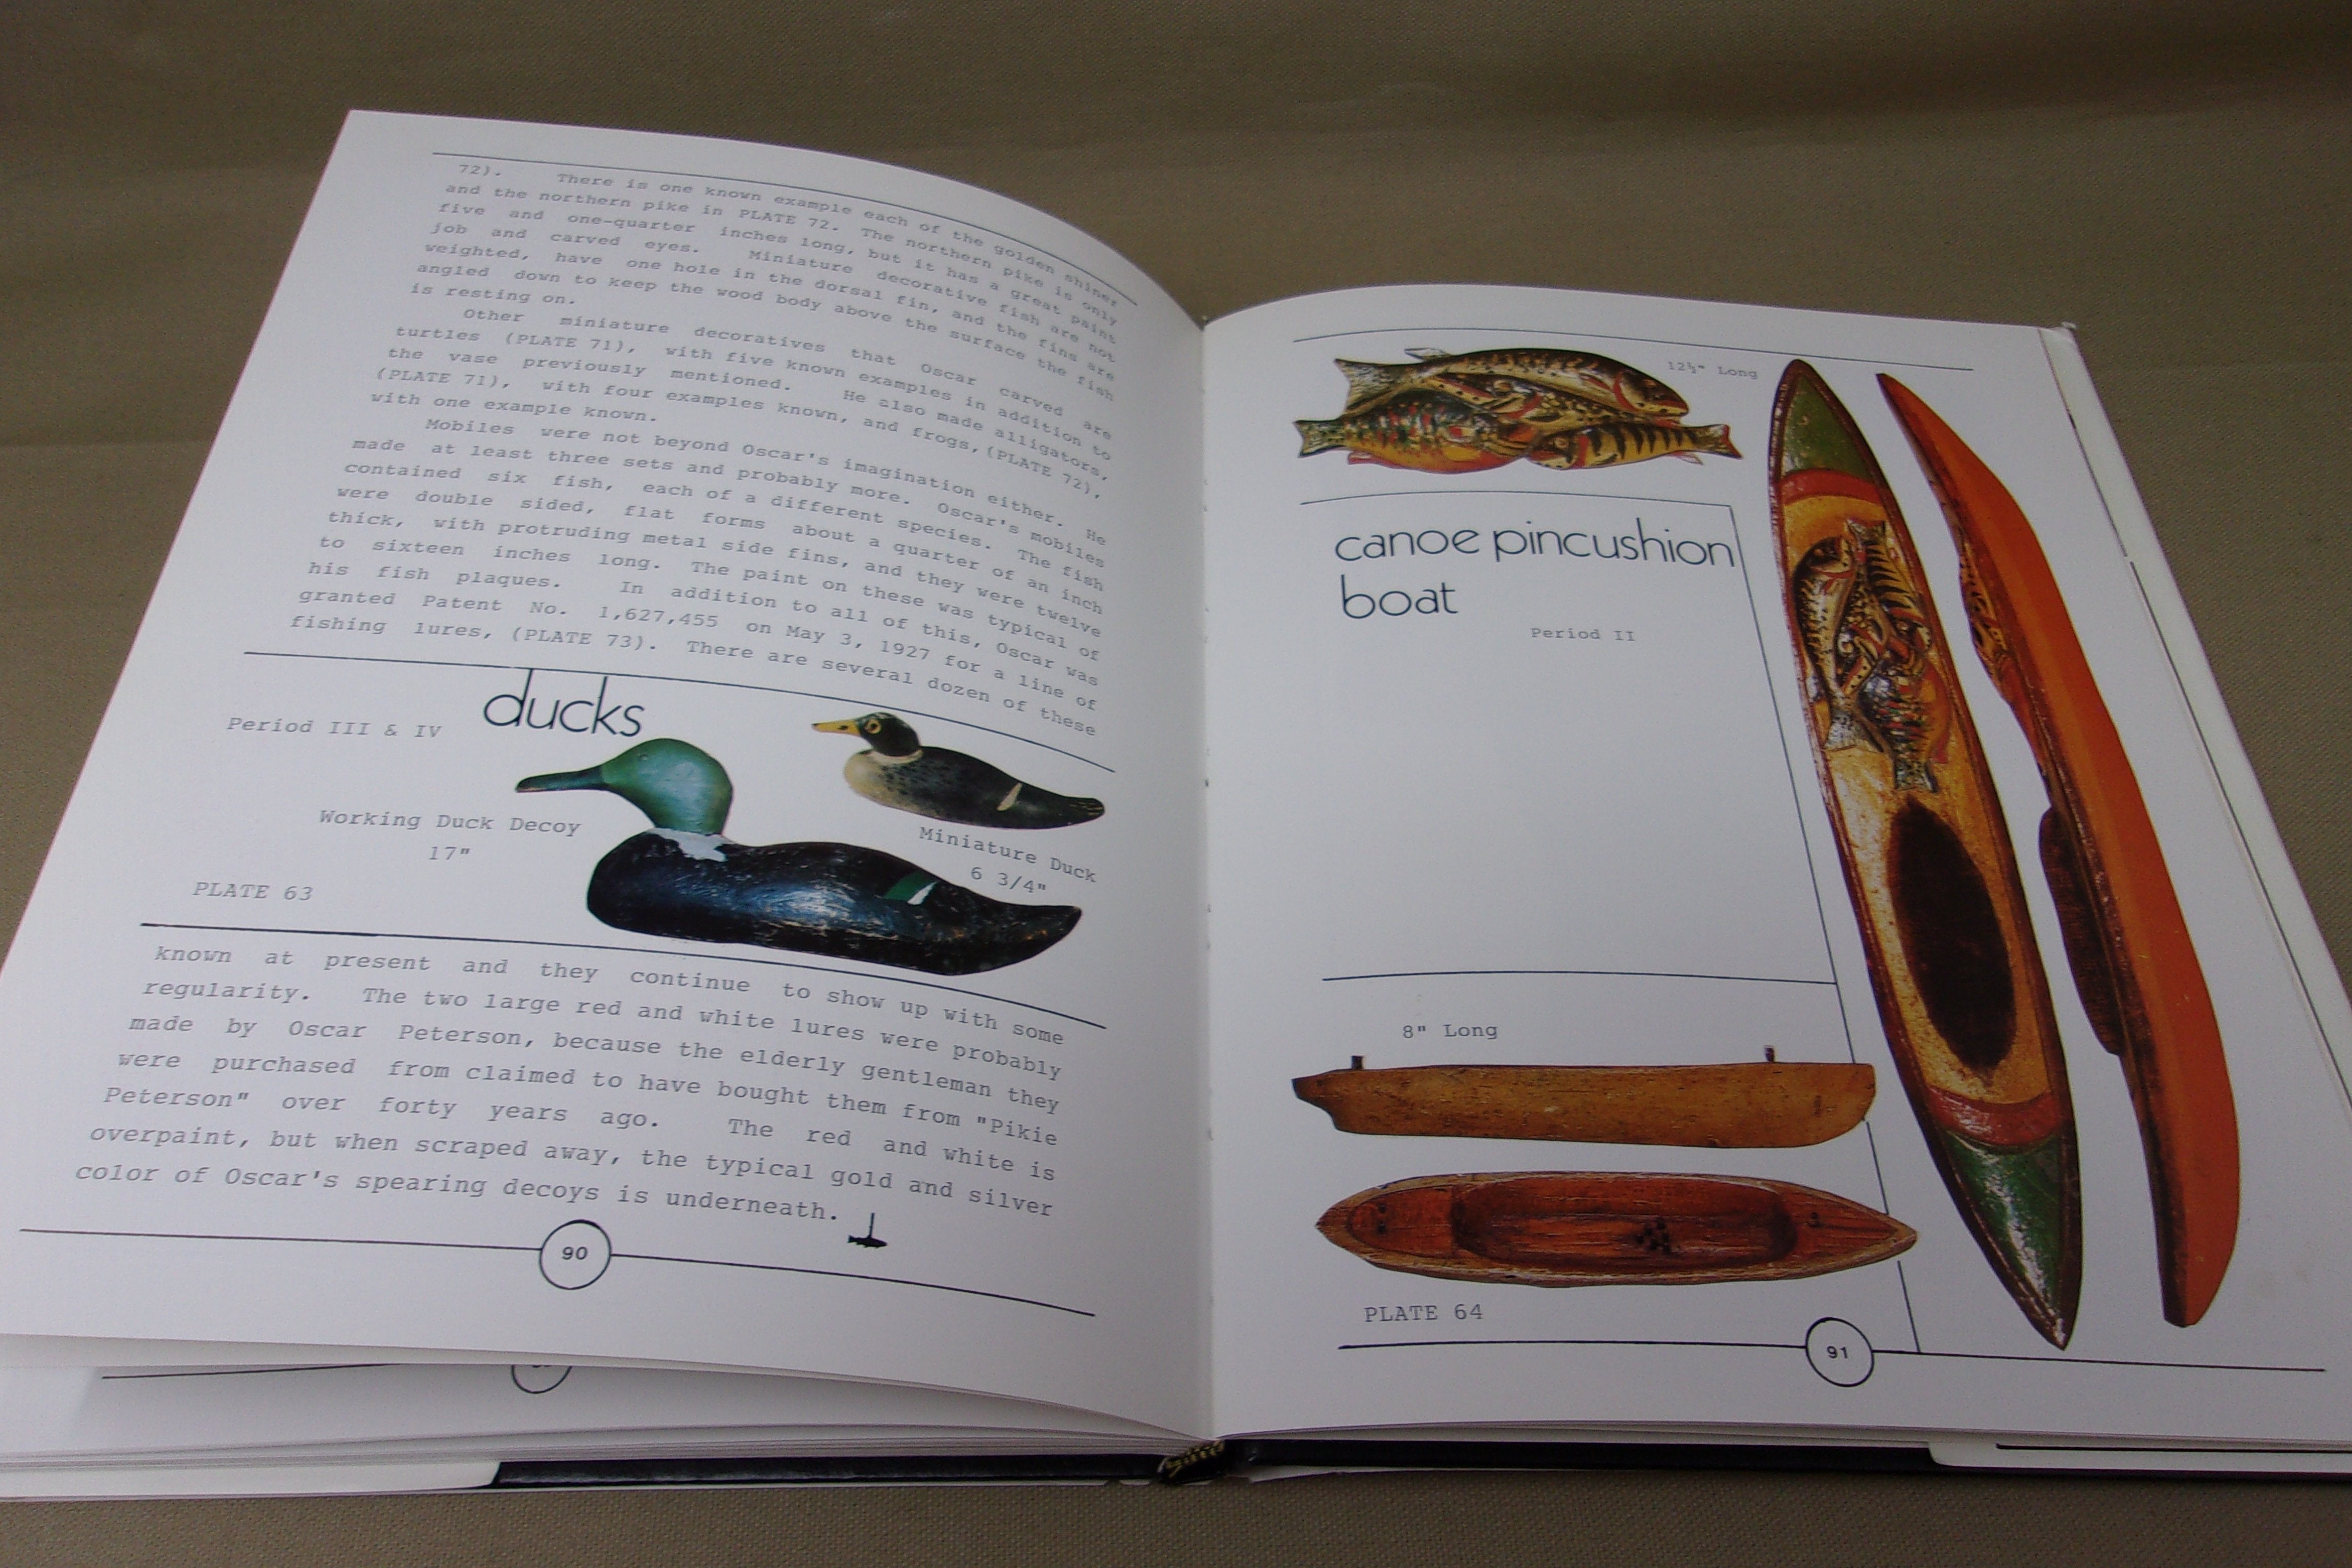 72). There is one known example each of the golden shiner
and the northern pike in PLATE 72. The northern pike is only
five and one-quarter inches long, but it has a great paint
job and carved eyes. Miniature decorative fish are not
weighted, have one hole in the dorsal fin, and the fins are
angled down to keep the wood body above the surface the fish
is resting on.
Other miniature decoratives that Oscar carved are
turtles (PLATE 71), with five known examples in addition to
the vase previously mentioned. He also made alligators,
(PLATE 71), with four examples known, and frogs, (PLATE 72),
with one example known.
Mobiles were not beyond Oscar's imagination either. He
made at least three sets and probably more. Oscar's mobiles
contained six fish, each of a different species. The fish
were double sided, flat forms about a quarter of an inch
thick, with protruding metal side fins, and they were twelve
to sixteen inches long. The paint on these was typical of
his fish plaques. In addition to all of this, Oscar was
granted Patent No. 1,627,455 on May 3, 1927 for a line of
fishing lures, (PLATE 73). There are several dozen of these
ducks
Period III & IV
Working Duck Decoy
17"
Miniature Duck
6 3/4"
PLATE 63
known at present and they continue to show up with some
regularity. The two large red and white lures were probably
made by Oscar Peterson, because the elderly gentleman they
were purchased from claimed to have bought them from "Pikie
Peterson" over forty years ago. The red and white is
overpaint, but when scraped away, the typical gold and silver
color of Oscar's spearing decoys is underneath.
90
12½" Long
canoe pincushion
boat
Period II
8" Long
PLATE 64
91